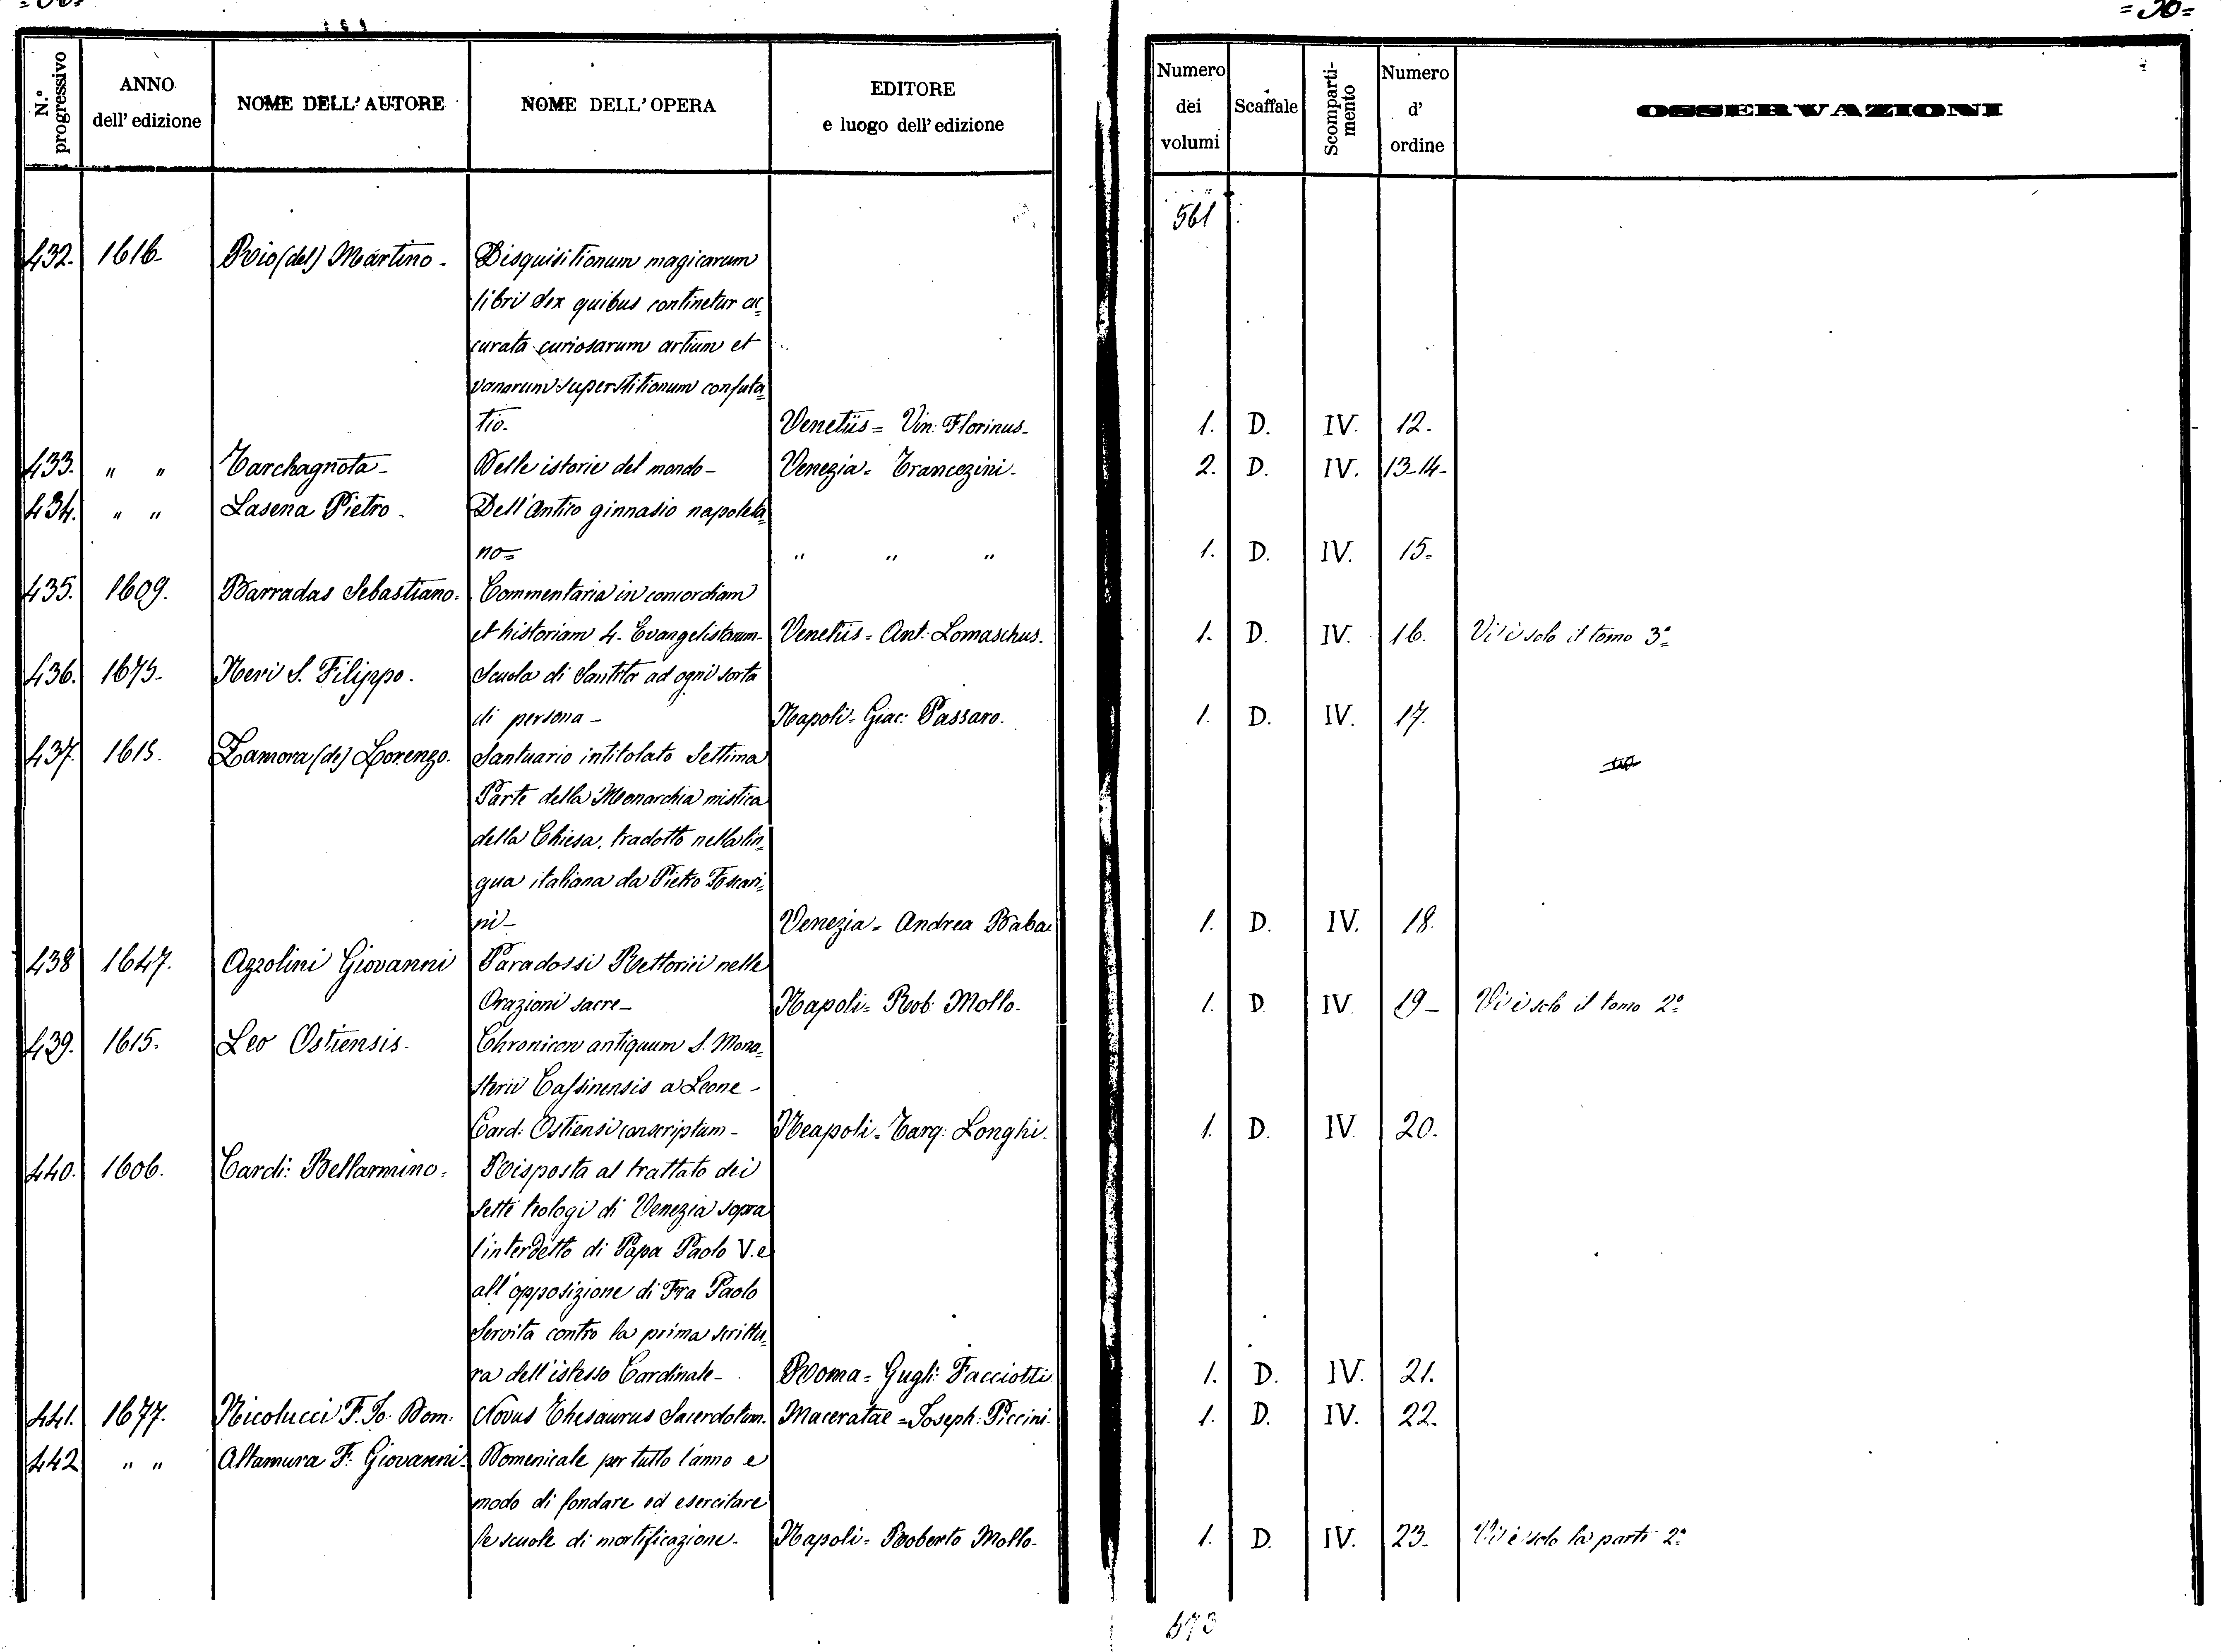 =36=
N.° progressivo
ANNO dell' edizione
NOME DELL' AUTORE
NOME DELL' OPERA
EDITORE e luogo dell' edizione
Numero dei volumi
Scaffale
Scomparti-mento
Numero d' ordine
OSSERVAZIONI
561
432. 1616- Rio (del) Martino. Disquisitionum magicarum
libri Sex quibus continetur ac=
curata curiosarum artium et
vanarum superstitionum confuta=
tio- Venetiis= Vin: Florinus- 1. D. IV. 12.
433. " " Tarchagnota- Delle istorie del mondo- Venezia= Trancozini. 2. D. IV. 13-14-
434. " " Lasena Pietro. Dell'Antico ginnasio napoleta=
no= " " " 1. D. IV. 15-
435. 1609. Barradas Sebastiano. Commentaria in concordiam
et historiam 4. Evangelistarum- Venetiis= Ant: Lomaschus. 1. D. IV. 16. Vi è solo il tomo 3°=
436. 1675- Neri S. Filippo. Scuola di Santità ad ogni sorta
di persona- Napoli= Giac: Passaro. 1. D. IV. 17.
437. 1615. Zamora (de) Lorenzo. Santuario intitolato Settima
Parte della Monarchia mistica
della Chiesa, tradotto nella lin=
gua italiana da Pietro Foscari=
ni- Venezia= Andrea Baba. 1. D. IV. 18.
438 1647. Azzolini Giovanni Paradossi Rettorici nelle
Orazioni sacre- Napoli= Rob: Mollo. 1. D. IV. 19- Vi è solo il tomo 2°=
439. 1615. Leo Ostiensis. Chronicon antiquum S. Mona=
sterii Cassinensis a Leone-
Card: Ostiensi conscriptum- Neapoli= Tarq: Longhi. 1. D. IV. 20.
440. 1606. Cardi: Bellarmino. Risposta al trattato dei
sette teologi di Venezia sopra
l'interdetto di Papa Paolo V. e
all'opposizione di Fra Paolo
Servita contro la prima scrittu=
ra dell'istesso Cardinale- Roma= Gugli: Facciotti. 1. D. IV. 21.
441. 1677. Nicolucci F. Io: Dom: Novus Thesaurus Sacerdotum. Maceratae= Joseph: Piccini. 1. D. IV. 22.
442 " " Altamura F. Giovanni. Domenicale per tutto l'anno e
modo di fondare ed esercitare
le scuole di mortificazione- Napoli= Roberto Mollo- 1. D. IV. 23. Vi è solo la parte 2ª